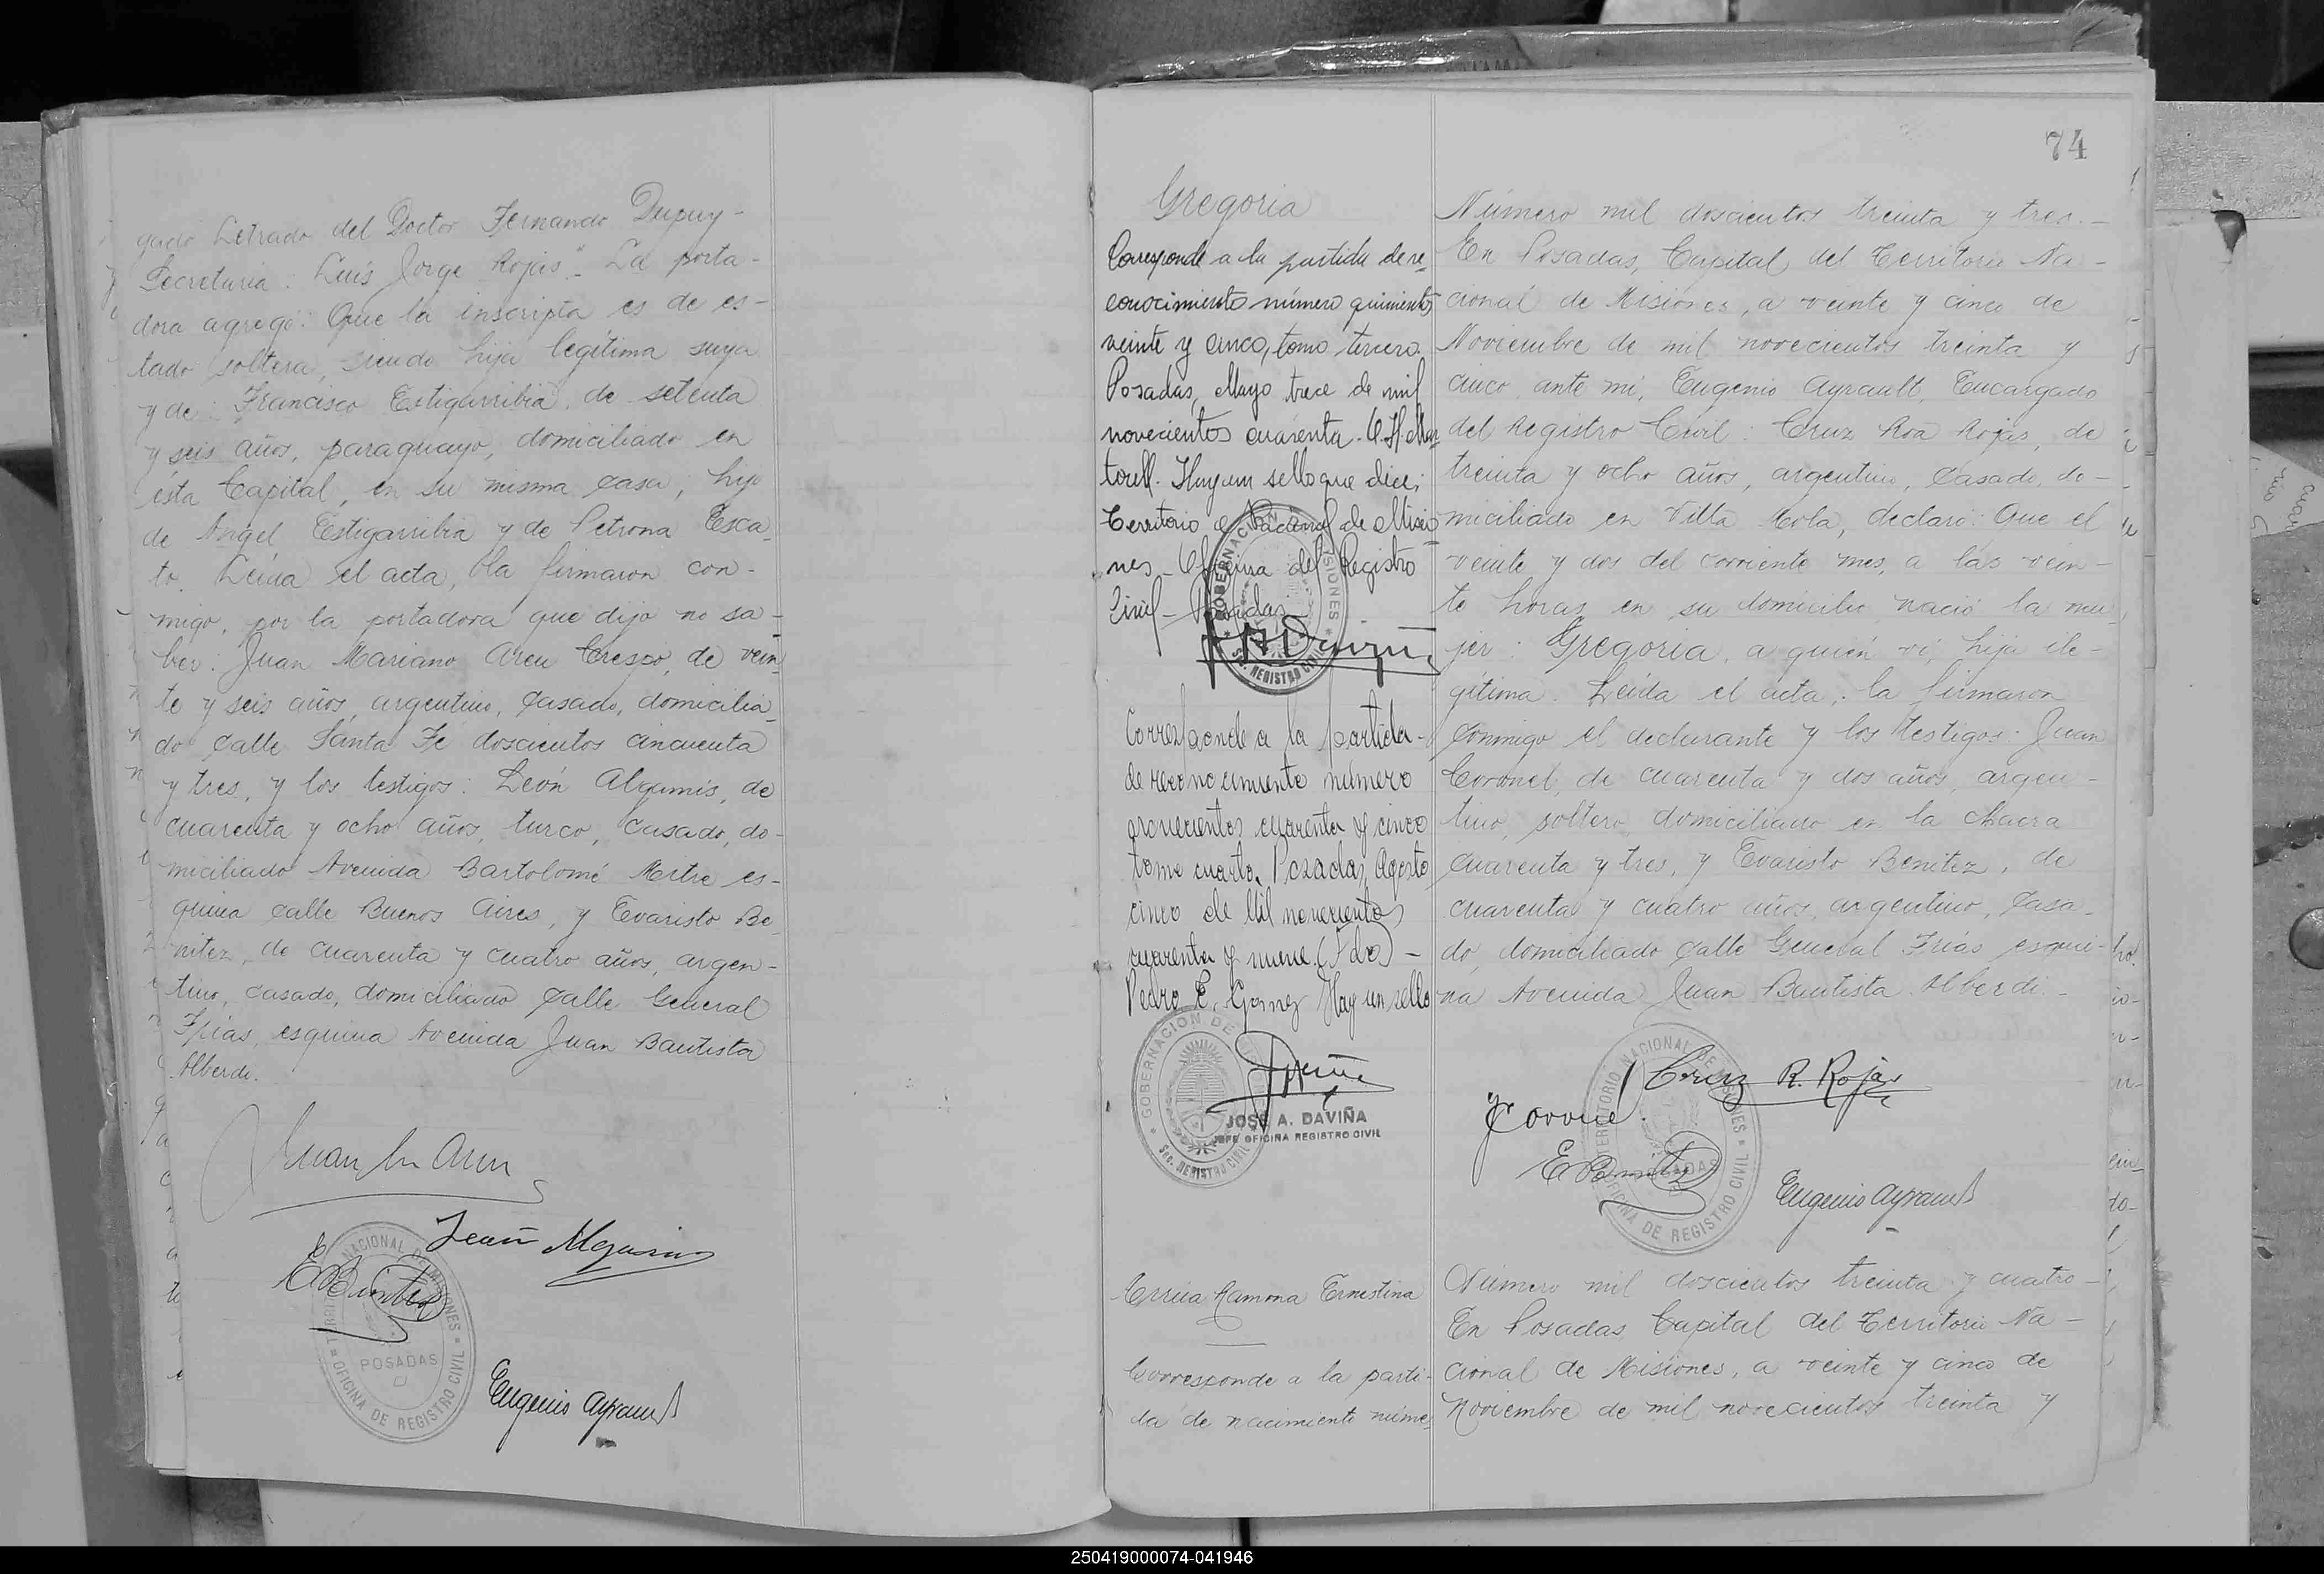 gado Letrado del Doctor Fernando Dupuy -
Secretaria: Luis Jorge Rojas". La porta-
dora agregó: Que la inscripta es de es-
tado soltera, siendo hija legítima suya
y de: Francisco Estigarribia, de setenta
y seis años, paraguayo, domiciliado en
ésta Capital, en su misma casa; hijo
de Angel Estigarribia y de Petrona Esca_
to. Leída el acta, la firmaron con-
migo, por la portadora que dijo no sa-
ber: Juan Mariano Areu Crespo, de vein_
te y seis años, argentino, casado, domicilia_
do calle Santa Fe doscientos cincuenta
y tres, y los testigos: León Alqamis, de
cuarenta y ocho años, turco, casado, do-
miciliado Avenida Bartolomé Mitre es-
quina calle Buenos Aires, y Evaristo Be_
nitez, de cuarenta y cuatro años, argen-
tino, casado, domiciliado calle General
Frias, esquina Avenida Juan Bautista
Alberdi.
NACIONAL DE MISIONES
POSADAS
OFICINA DE REGISTRO CIVIL
Eugenio Ayrault
74
Gregoria
Corresponde a la partida de re_
conocimiento número quinientos
veinte y cinco, tomo tercero.
Posadas, Mayo trece de mil
novecientos cuarenta. C. H. Mar
torell. Hay un sello que dice;
Territorio Nacional de Misio_
nes_ Oficina del Registro
Civil_ Posadas
GOBERNACION MISIONES
Sec. REGISTRO CIVIL
Corresponde a la partida -
de reconocimiento número
novecientos cuarenta y cinco
tomo cuarto. Posadas, Agosto
cinco de Mil novecientos
cuarenta y nueve. (Fdo) -
Pedro E. Gomez Hay un sello
GOBERNACION DE
Sec. REGISTRO CIVIL
JOSÉ A. DAVIÑA
JEFE OFICINA REGISTRO CIVIL
Número mil doscientos treinta y tres. -
En Posadas, Capital del Territorio Na -
cional de Misiones, a veinte y cinco de
Noviembre de mil novecientos treinta y
cinco, ante mí, Eugenio Ayrault, Encargado
del Registro Civil: Cruz Roa Rojas, de
treinta y ocho años, argentino, casado, do-
miciliado en Villa Mola, declaró: Que el
veinte y dos del corriente mes, a las vein-
te horas, en su domicilio nació la mu_
jer: Gregoria, a quién ví, hija ile-
gítima. Leída el acta, la firmaron
conmigo el declarante y los testigos: Juan
Coronel, de cuarenta y dos años, argen-
tino, soltero, domiciliado en la chacra
cuarenta y tres, y Evaristo Benitez, de
cuarenta y cuatro años, argentino, casa_
do, domiciliado calle General Frias esqui-
na Avenida Juan Bautista Alberdi. -
TERRITORIO NACIONAL DE MISIONES
OFICINA DE REGISTRO CIVIL
Cruz R. Rojas
E Benitez
Eugenio Ayrault
Errúa Ramona Ernestina
Corresponde a la parti-
da de nacimiento núme_
Número mil doscientos treinta y cuatro -
En Posadas, Capital del Territorio Na -
cional de Misiones, a veinte y cinco de
Noviembre de mil novecientos treinta y
250419000074-041946